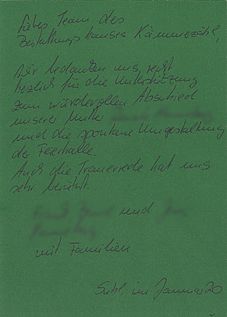 Liebes Team des
Bestattungshauses
Wir bedanken uns recht
herzlich für die Unterstützung
zum würdevollen Abschied
unserer Mutter
und die spontane Umgestaltung
der Feierhalle.
Auch die Trauerrede hat uns
sehr berührt.
und
mit Familien
Suhl, im Januar 20